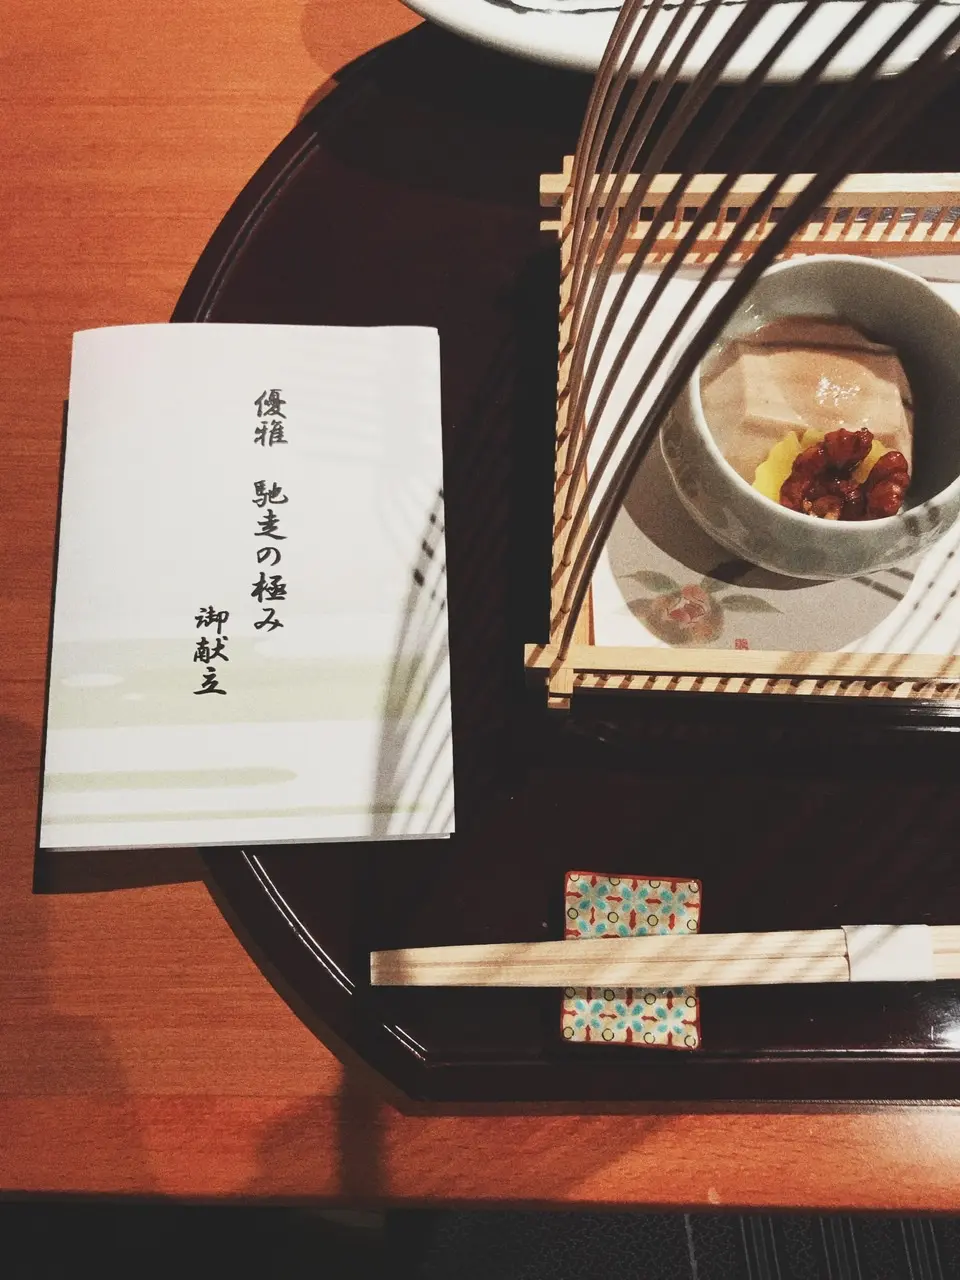 優雅 馳走の極み
御献立